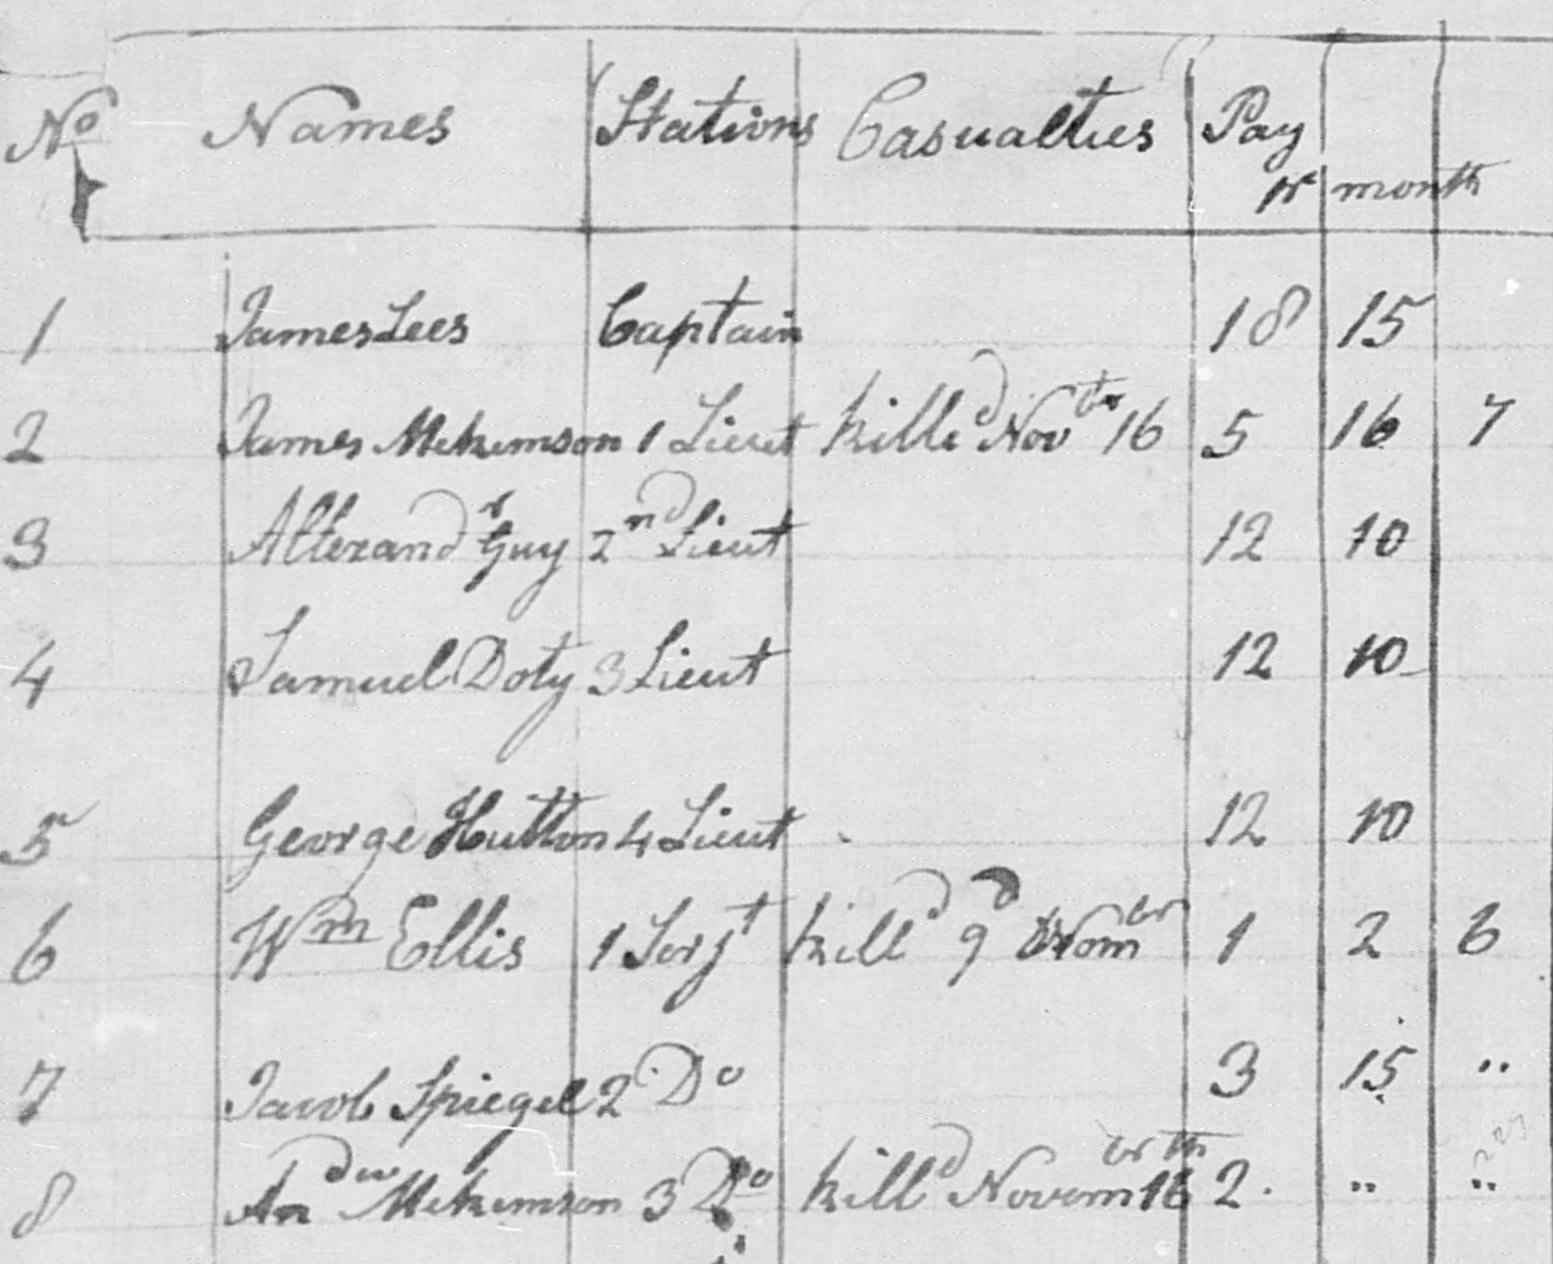 No Names Stations Casualties Pay
pr month
1 James Lees Captain 18 15
2 James Mckemson 1 Lieut killd Novbr 16 5 16 7
3 Allexandr Guy 2nd Lieut 12 10
4 Samuel Doty 3 Lieut 12 10
5 George Hutton 4 Lieut 12 10
6 Wm Ellis 1 Serjt killd 9 Nombr 1 2 6
7 Jacob Spiegel 2 Do 3 15 "
8 Andw Mckemson 3 Do killd Novembr 16th 2 " "